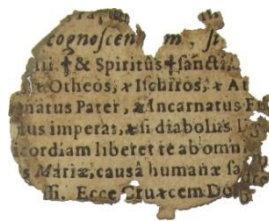 cognoscen m, si
& Spiritus ✝ sancti
Otheos, & Ischiros, & At
natus Pater, & Incarnatus Fi
us imperat, & si diabolus
cordiam liberet te ab omni
s Mariæ, causâ humanæ sa
si. Ecce Cru✝cem Do